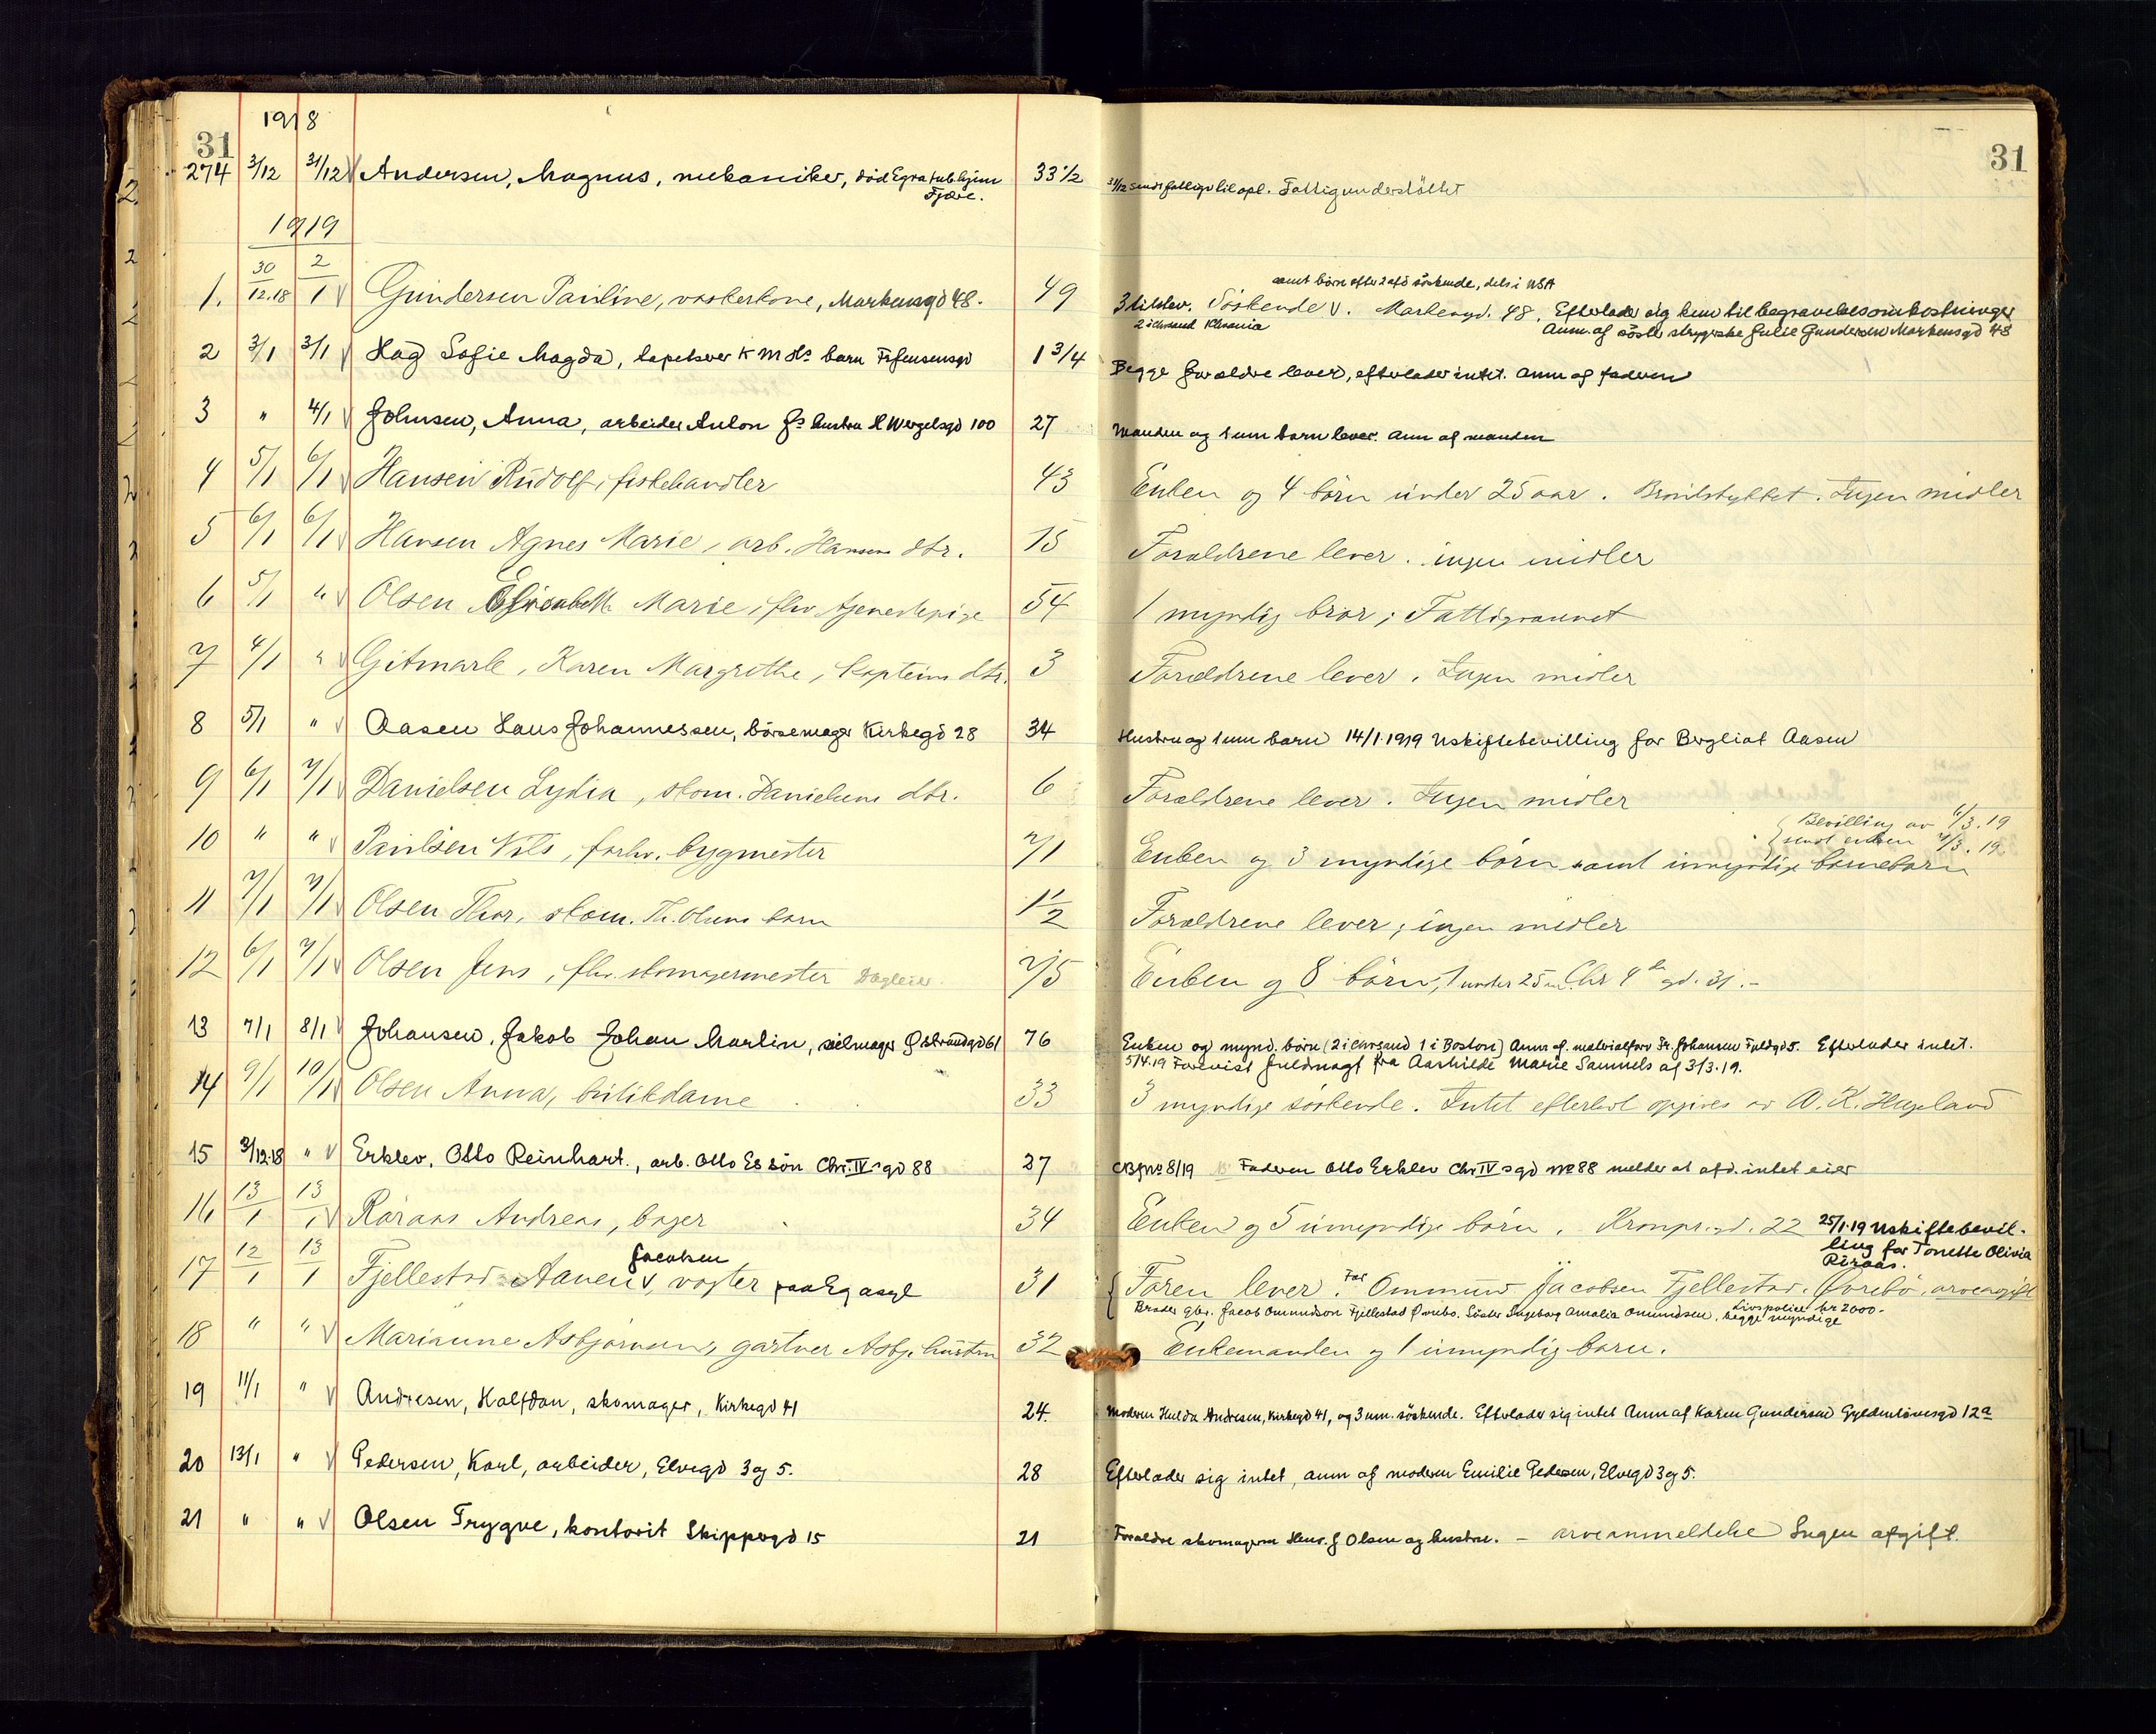 31
1918
274 3/12 31/12 Andersen, Magnus, mekaniker, död Egra tub.hjem
Fjære.
33 1/2
31/12 sendt fattigv til opl. Fattigunderstöttet
1919
1. 30/12.18 2/1 Gundersen Pauline, vaskerkone, Markensgd 48.
49
samt børn efter 2 afd söskende, dels i USA
3 tilslev. Söskende V. Markengd. 48. Efterlader sig kun til begravelsesomkostninger
2 i Chrsand Khrania
Anm. af söster strygerske Julie Gundersen Markensgd 48
2 3/1 3/1 Hag Sofie Magda, tapetserer K M Hs barn Frf
1 3/4
Begge forældre lever, efterlader intet. anm af faderen
3 " 4/1 Johnsen, Anna, arbeider Anton Js hustru H Wergelsgd 100
27
Manden og 1 um barn lever. Anm af manden
4 5/1 6/1 Hansen Rudolf, fiskehandler
43
Enken og 4 börn under 25 aar. Ingen midler
5 6/1 6/1 Hansen Agnes Marie, arb. Hansens dtr.
15
Forældrene lever. ingen midler
6 5/1 " Olsen Elisabeth Marie, flv tjenestepige
54
1 myndig bror; Fattigvæsnet
7 4/1 " Gitmark, Karen Margrethe, kapteins dtr.
3
Forældrene lever. Ingen midler
8 5/1 " Aasen Hans Johannessen, børsemager Kirkegd 28
34
Hustru og 1 um barn 14/1 1919 Uskiftebevilling for Bergliot Aasen
9 6/1 7/1 Danielsen Lydia, skom. Danielsens dtr.
6
Forældrene lever. Ingen midler
Bevilling av 6/3.19
sendt enken 7/3.19
10 " " Paulsen Nils, forhv. bygmester
71
Enken og 3 myndige börn samt umyndige barnebarn
11 7/1 7/1 Olsen Thor, skom. Th. Olsens barn
1 1/2
Forældrene lever; ingen midler
12 6/1 7/1 Olsen Jens, flv. skomagermester
75
Enken og 8 börn, 1 under 25 Chr 4de gd. 31.-
13 7/1 8/1 Johansen, Jakob Johan Martin, seilmager Ø Strandgd 61
76
Enken og mynd. börn (2 i Chrsand 1 i Boston) Anm af. materialforv Fr. Johansen Fyldgd 5. Efterlader intet.
5/4.19 Forevist fuldmagt fra Aashilde Marie Samuels af 3/3.19.
14 9/1 10/1 Olsen Anna, butikdame
33
3 myndige söskende. Intet efterladt opgives av O. K. Hageland
15 3/12.18 " Erklev, Otto Reinhart., arb. Otto Es sön Chr. IV-sgd 88
27
CBJ No 8/19 Faderen Otto Erklev Chr IV sgd No 88 melder at afd. intet eier
16 13/1 13/1 Röraas Andreas, bager
34
Enken og 5 umyndige börn. Kronpr.gd. 22 25/1.19 Uskiftebevil-
ling for Tonette Olivia
Röraas.
17 12/1 13/1 Fjellestad Aanen, vogter paa Eg asyl
Jacobsen
31
Faren lever. Far Ommund Jacobsen Fjellestad. Øvrebö. arveavgift
Broder gbr. Jacob Ommundson Fjellestad Øvrebo. Söster Ingeborg Amalia Ommundsen, begge myndige
Livspolice kr 2000.-
18 " " Marianne Asbjørnsen, gartner Asbj. hustru
32
Enkemanden og 1 umyndig barn.
19 11/1 " Andresen, Halfdan, skomager, Kirkegd 41
24.
Moderen Hulda Andresen, Kirkegd 41, og 3 um. söskende. Efterlader sig intet Anm af Karen Gundersen Gyldenlövesgd 12a
20 13/1 " Pedersen, Karl, arbeider, Elvegd 3 og 5.
28
Efterlader sig intet, anm af moderen Emilie Pedersen, Elvegd 3 og 5.
21 " " Olsen Trygve, kontorist Skippergd 15
21
Forældre skomagerm Henr. J Olsen og hustru. - arveanmeldelse Ingen afgift.
31